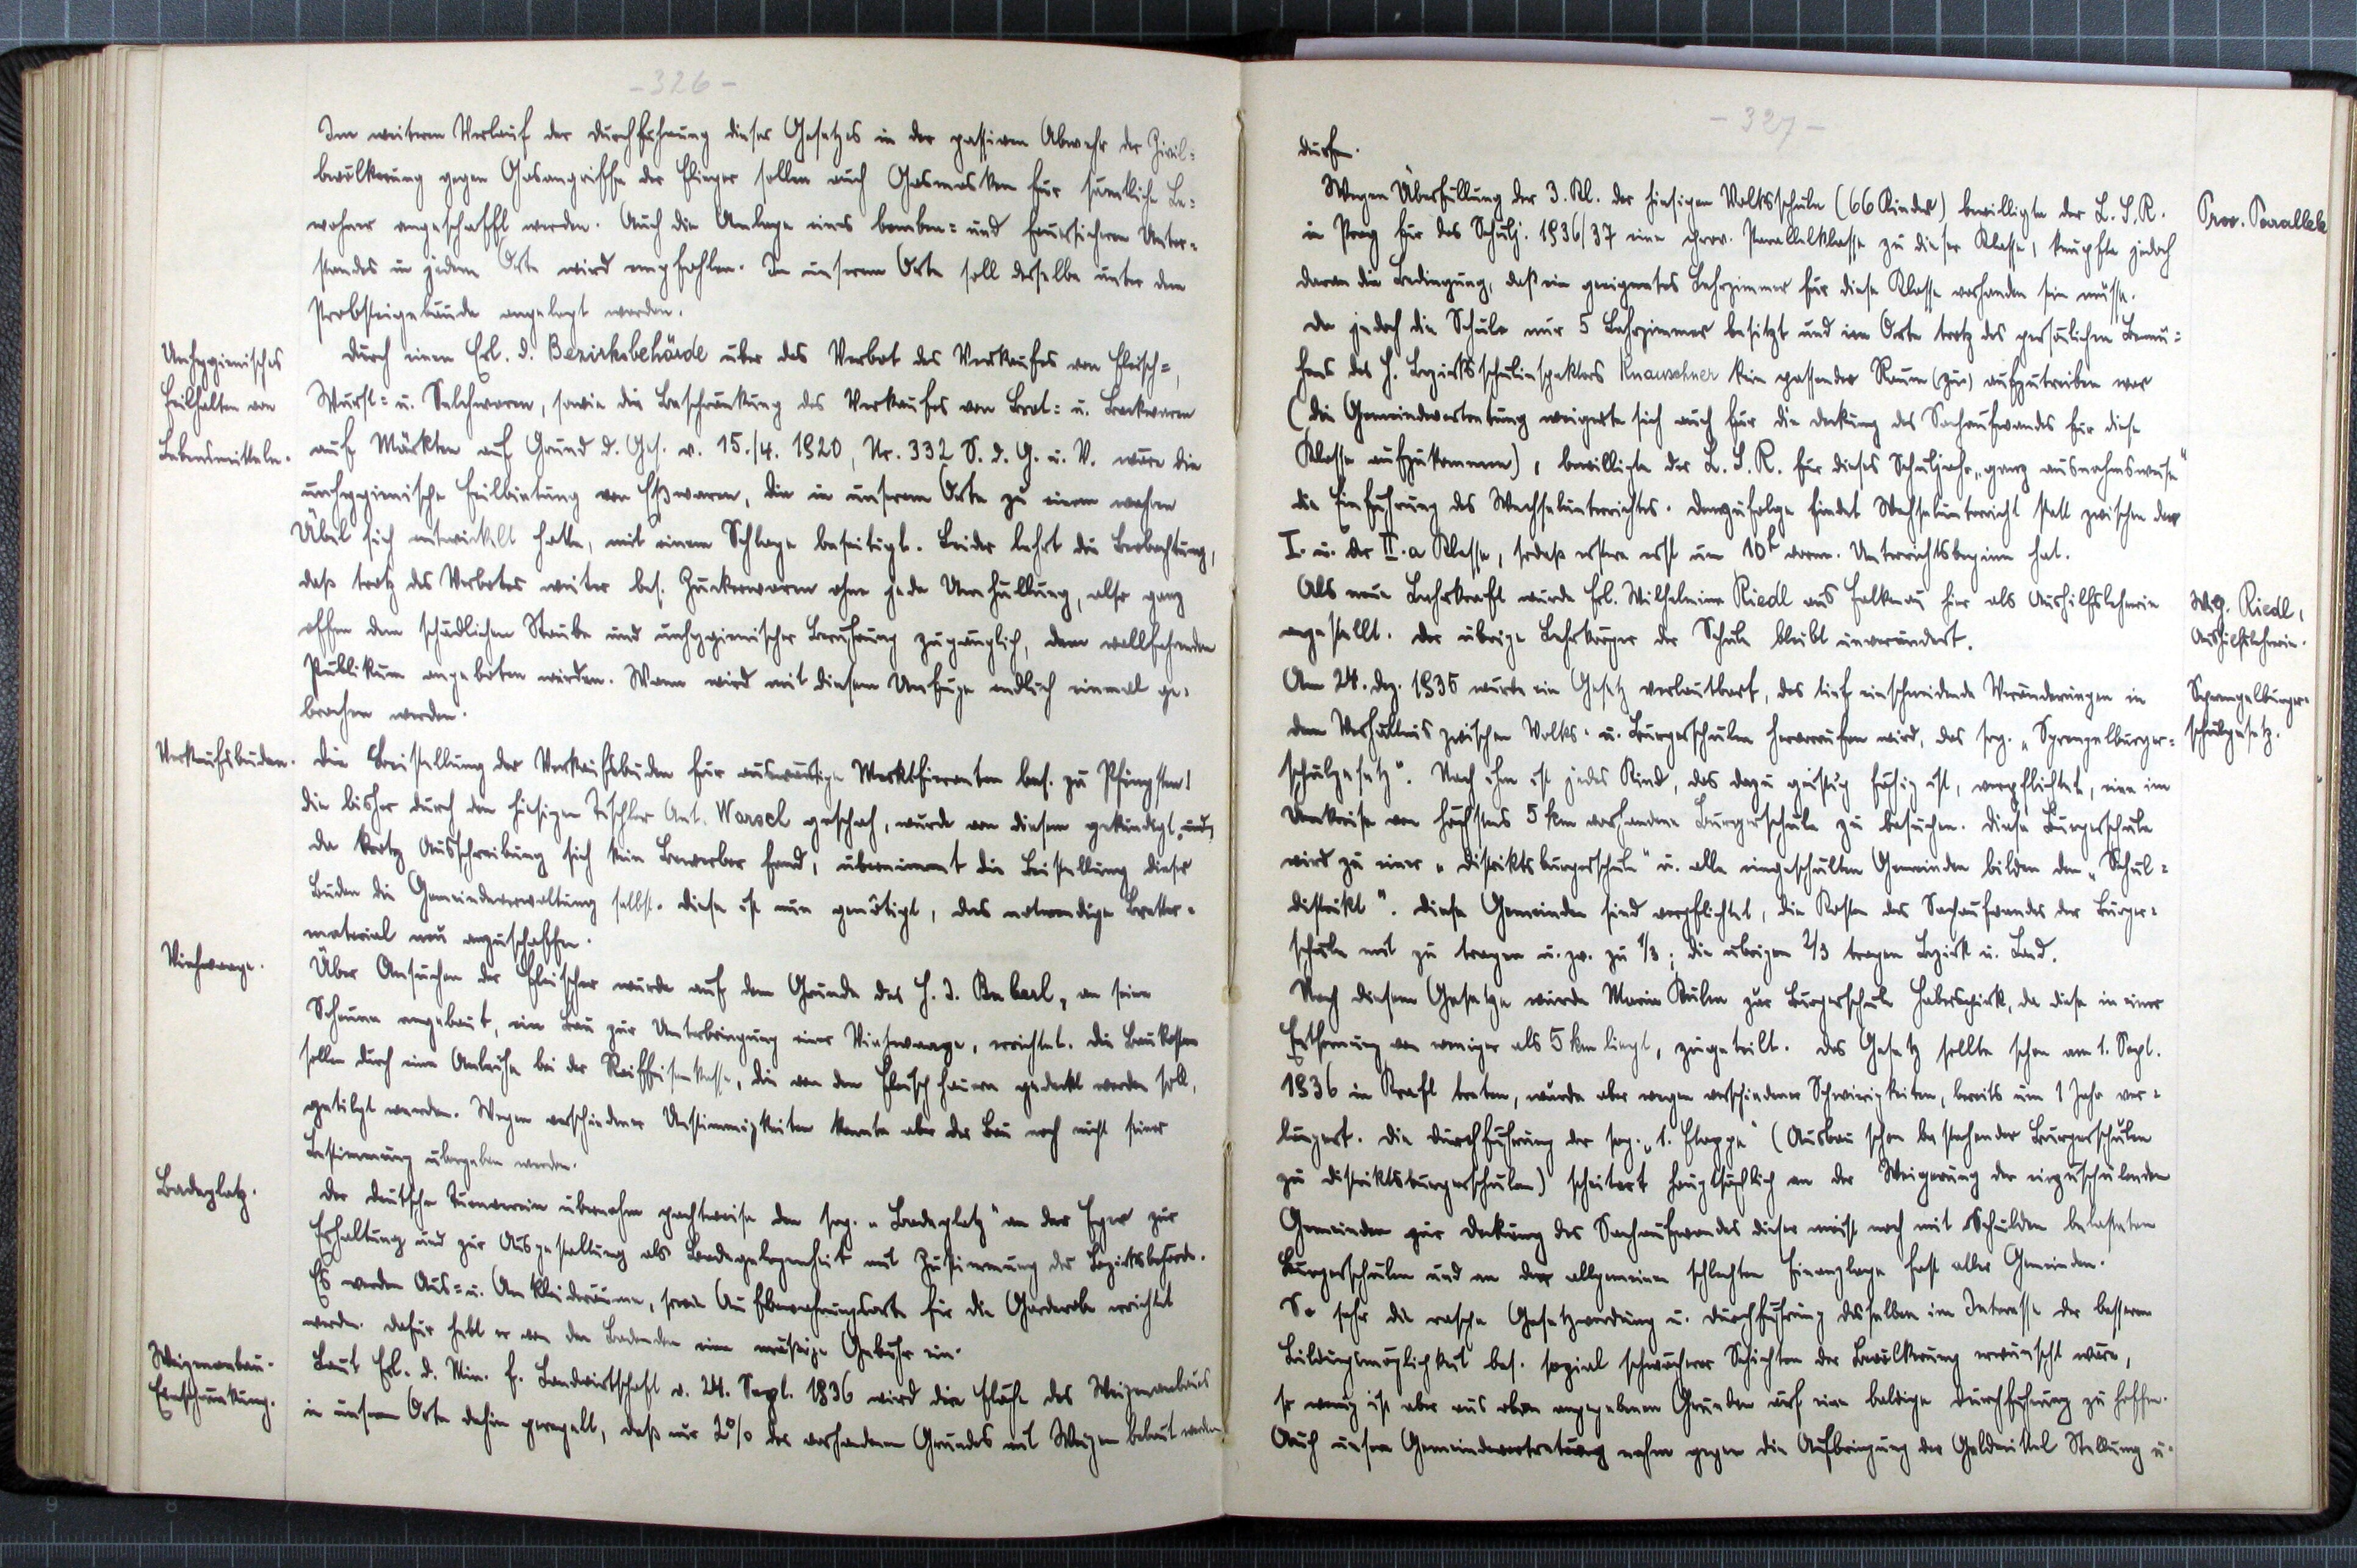 -326-
Im weiteren Verlauf der Durchführung dieses Gesetzes in der passiven Abwehr der Zivil=
bevölkerung gegen Gasangriffe der Flieger sollen auch Gasmasken für sämtliche Be=
wohner angeschafft werden. Auch die Anlage eines bomben= und feuersicheren Unter=
standes in jedem Orte wird empfohlen. In unserem Orte soll derselbe unter dem
Probsteigebäude angelegt werden.
Unhygienisches
Feilhalten von
Lebensmitteln.
Durch einen Erl. d. Bezirksbehörde über das Verbot des Verkaufes von Fleisch=,
Wurst= u. Selchwaren, sowie die Beschränkung des Verkaufes von Brot= u. Backwaren
auf Märkten auf Grund d. Ges. v. 15./4. 1920, Nr. 332 S. d. G. u. V. wäre die
unhygienische Feilbietung von Eßwaren, die in unserem Orte zu einem wahren
Übel sich entwickelt hatte, mit einem Schlage beseitigt. Leider lehrt die Beobachtung,
daß trotz des Verbotes weiter bes. Zuckerwaren ohne jede Umhüllung, also ganz
offen dem schädlichen Staube und unhygienischer Berührung zugänglich, dem wallfahrenden
Publikum angeboten wurden. Wann wird mit diesem Unfuge endlich einmal ge=
brochen werden.
Verkaufsbuden.
Die Beistellung der Verkaufsbuden für auswärtige Marktfieranten bes. zu Pfingsten,
die bisher durch den hiesigen Tischler Ant. Worsch geschah, wurde von diesem gekündigt und,
da trotz Ausschreibung sich kein Bewerber fand, übernimmt die Beistellung dieser
Buden die Gemeindeverwaltung selbst. Diese ist nun genötigt, das notwendige Bretter=
material neu anzuschaffen.
Viehwaage.
Über Ansuchen der Fleischer wurde auf dem Grunde des H. J. an seine
Scheune angebaut, ein Bau zur Unterbringung einer Viehwaage, errichtet. Die Baukosten
sollen durch eine Anleihe bei der Raiffeisenkasse, die von den Fleischhauern gedeckt werden soll,
getilgt werden. Wegen verschiedener Unstimmigkeiten konnte aber der Bau noch nicht seiner
Bestimmung übergeben werden.
Badeplatz.
Der deutsche Turnverein übernahm pachtweise den sog. "Badeplatz" an der Eger zur
Erhaltung und zur Ausgestaltung als Badegelegenheit mit Zustimmung der Bezirksbehörde.
Es werden Aus= u. Ankleideräume, sowie Aufbewahrungsorte für die Garderobe errichtet
werden. Dafür hebt er von den Badenden eine mäßige Gebühr ein.
Weizenanbau-
Einschränkung.
Laut Erl. d. Min. f. Landwirtschaft v. 24. Sept. 1936 wird die Fläche des Weizenanbaues
in unserem Orte dahin geregelt, daß nur 2% des vorhandenen Grundes mit Weizen bebaut werden
-327-
dürfen.
Wegen Überfüllung der 3. Kl. der hiesigen Volksschule (66 Kinder) bewilligte der L. S. R.
Prov. Parallelk
in Prag für das Schulj. 1936/37 eine prov. Parallelklasse zu dieser Klasse, knüpfte jedoch
daran die Bedingung, daß ein geeignetes Lehrzimmer für diese Klasse vorhanden sein müsse.
Da jedoch die Schule nur 5 Lehrzimmer besitzt und im Orte trotz des persönlichen Bemü=
hens des H. Bezirksschulinspektors Knauschner kein passender Raum (zu) aufzutreiben war
(die Gemeindevertretung weigerte sich auch für die Deckung des Sachaufwandes für diese
Klasse aufzukommen), bewilligte der L. S. R. für dieses Schuljahr "ganz ausnahmsweise"
die Einführung des Wechselunterrichtes. Demzufolge findet Wechselunterricht statt zwischen der
I. u. der II.a Klasse, sodaß erstere erst um 10h vorm. Unterrichtsbeginn hat.
Als neue Lehrkraft wurde Frl. Wilhelmine Riedl aus Falkenau hier als Aushilfslehrerin
Wilh. Riedl,
Aushilfslehrerin.
angestellt. Der übrige Lehrkörper der Schule bleibt unverändert.
Am 24. Dez. 1935 wurde ein Gesetz verlautbart, das tief einschneidende Veränderungen in
Sprengelbürger-
schulgesetz.
dem Verhältnis zwischen Volks- u. Bürgerschulen hervorrufen wird, das sog. "Sprengelbürger=
schulgesetz". Nach ihm ist jedes Kind, das dazu geistig fähig ist, verpflichtet, eine im
Umkreise von höchstens 5 km vorhandene Bürgerschule zu besuchen. Diese Bürgerschule
wird zu einer "Distriktsbürgerschule" u. alle eingeschulten Gemeinden bilden den "Schul=
distrikt". Diese Gemeinden sind verpflichtet, die Kosten des Sachaufwandes der Bürger=
schule mit zu tragen u. zw. zu 1/3; die übrigen 2/3 tragen Bezirk u. Land.
Nach diesem Gesetze wurde Maria Kulm zur Bürgerschule Haberspirk, da diese in einer
Entfernung von weniger als 5 km liegt, zugeteilt. Das Gesetz sollte schon am 1. Sept.
1936 in Kraft treten, wurde aber wegen verschiedener Schwierigkeiten, bereits um 1 Jahr ver=
längert. Die Durchführung der sog. "1. Etappe" (Ausbau schon bestehender Bürgerschulen
zu Distriktsbürgerschulen) scheitert hauptsächlich an der Weigerung der einzuschulenden
Gemeinden zur Deckung des Sachaufwandes dieser meist noch mit Schulden belasteten
Bürgerschulen und an der allgemeinen schlechten Finanzlage fast aller Gemeinden.
So sehr die rasche Gesetzwerdung u. Durchführung desselben im Interesse der besseren
Bildungsmöglichkeit bes. sozial schwächerer Schichten der Bevölkerung erwünscht wäre,
so wenig ist aber aus oben angegebenen Gründen auf eine baldige Durchführung zu hoffen.
Auch unsere Gemeindevertretung nahm gegen die Aufbringung der Geldmittel Stellung u.